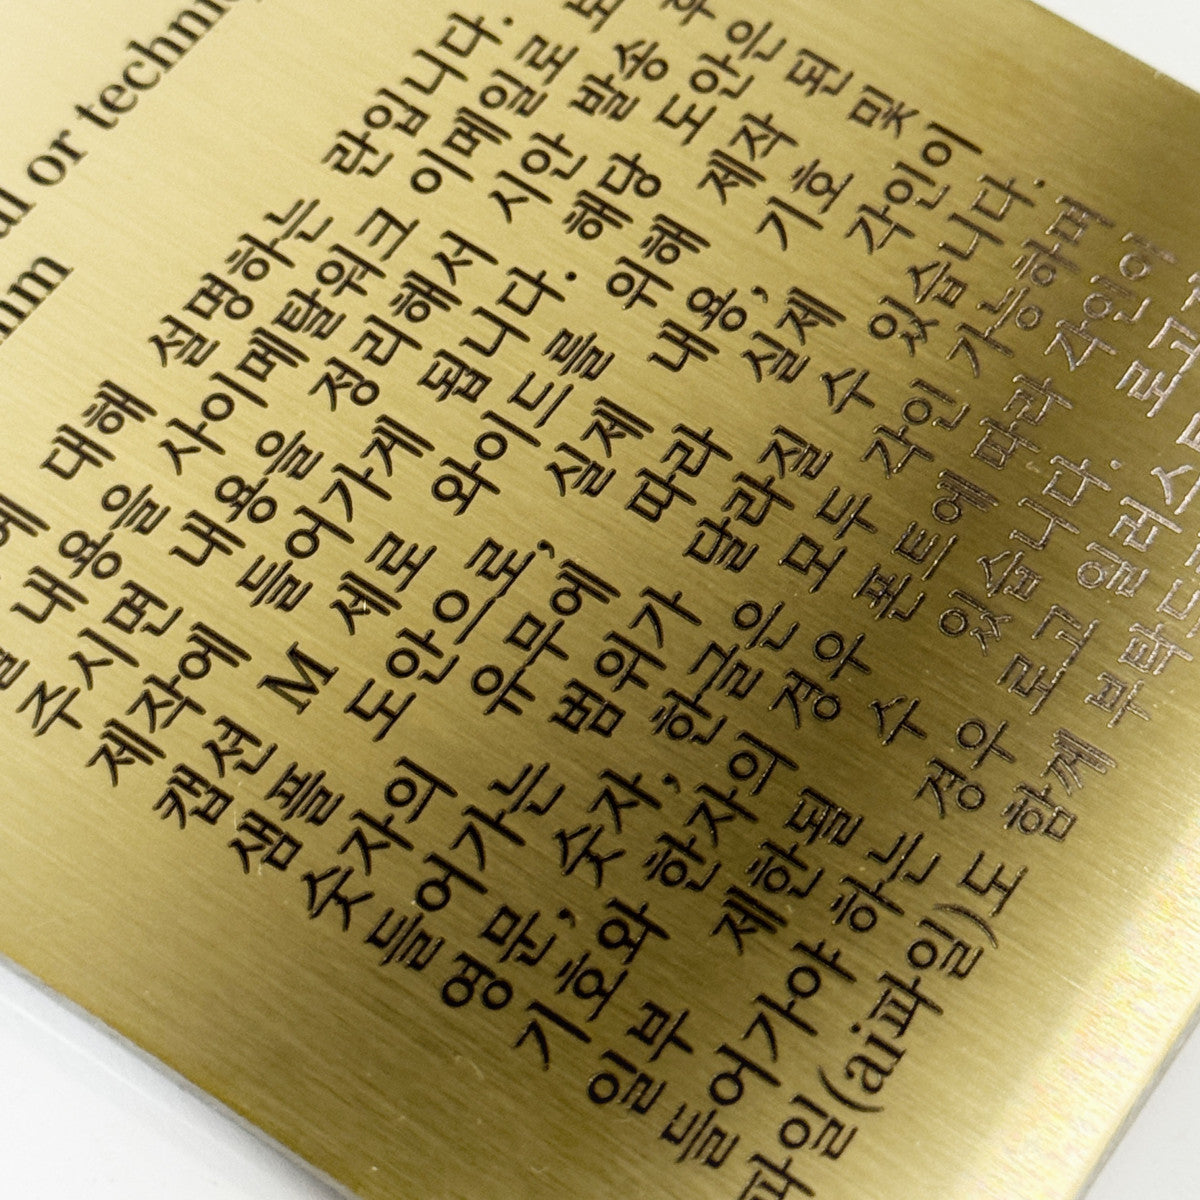 or
에 대해 설명하는 란입니다.
내용을 사이메탈워크 이메일로
주시면 내용을 정리해서 시안 발송 후
제작에 들어가게 됩니다. 해당 도안은
캡션 M 세로 와이드를 위해 제작 된
샘플 도안으로, 실제 내용, 기호 및
숫자의 유무에 따라 실제 각인이
들어가는 범위가 달라질 수 있습니다.
영문, 숫자, 한글은 모두 각인 가능하며
기호와 한자의 경우 폰트에 따라 각인이
일부 제한될 수 있습니다. 로고가
들어가야 하는 경우 로고 일러스
파일(ai파일)도 함께 부탁드